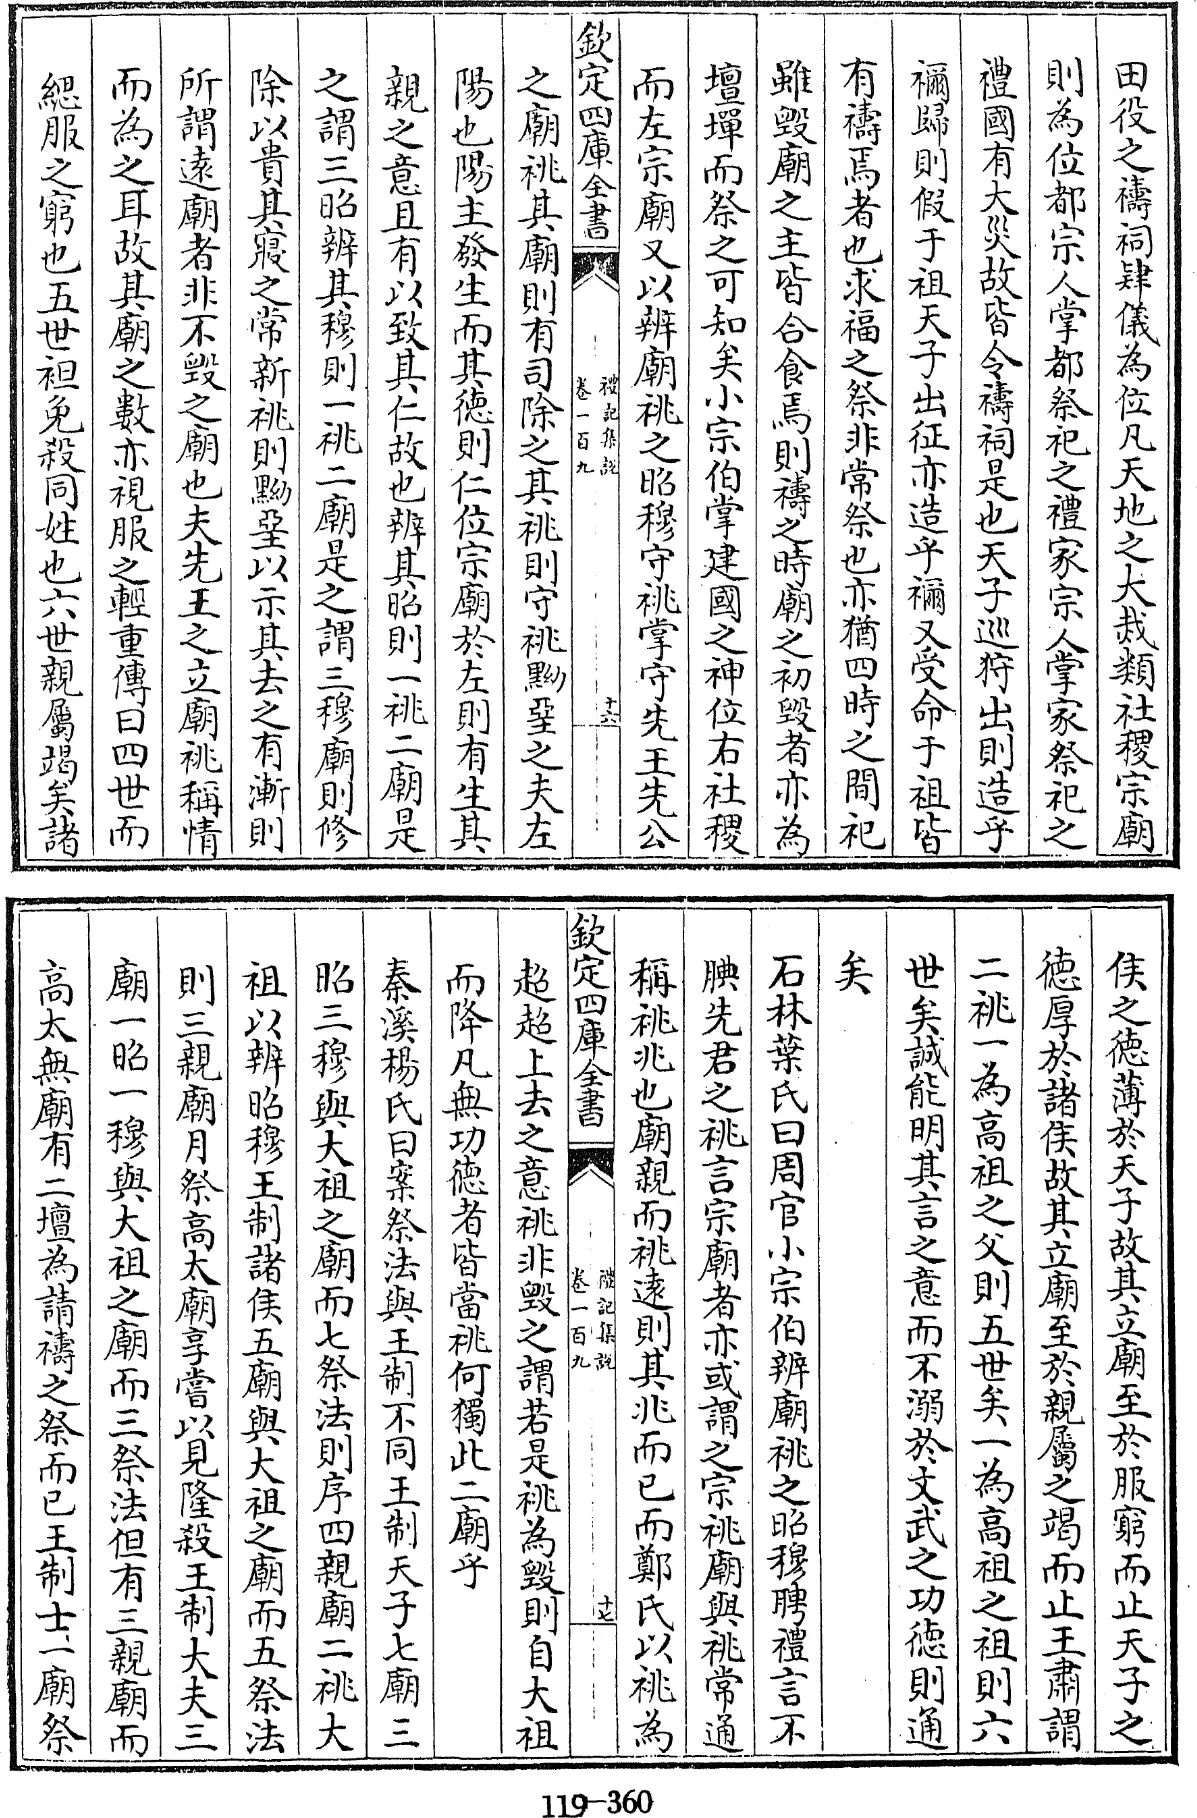 田役之禱祠肄儀為位凡天地之大烖類社稷宗廟
則為位都宗人掌都祭祀之禮家宗人掌家祭祀之
禮國有大災故皆令禱祠是也天子巡狩出則造乎
禰歸則假于祖天子出征亦造乎禰又受命于祖皆
有禱焉者也求福之祭非常祭也亦猶四時之間祀
雖毀廟之主皆合食焉則禱之時廟之初毀者亦為
壇墠而祭之可知矣小宗伯掌建國之神位右社稷
而左宗廟又以辨廟祧之昭穆守祧掌守先王先公
欽定四庫全書
禮記集説
卷一百九
十六
之廟祧其廟則有司除之其祧則守祧黝堊之夫左
陽也陽主發生而其德則仁位宗廟於左則有生其
親之意且有以致其仁故也辨其昭則一祧二廟是
之謂三昭辨其穆則一祧二廟是之謂三穆廟則修
除以貴其寢之常新祧則黝堊以示其去之有漸則
所謂遠廟者非不毀之廟也夫先王之立廟祧稱情
而為之耳故其廟之數亦視服之輕重傳曰四世而
緦服之窮也五世袒免殺同姓也六世親屬竭矣諸
侯之德薄於天子故其立廟至於服窮而止天子之
德厚於諸侯故其立廟至於親屬之竭而止王肅謂
二祧一為高祖之父則五世矣一為高祖之祖則六
世矣誠能明其言之意而不溺於文武之功德則通
矣
石林葉氏曰周官小宗伯辨廟祧之昭穆聘禮言不
腆先君之祧言宗廟者亦或謂之宗祧廟與祧常通
稱祧兆也廟親而祧遠則其兆而已而鄭氏以祧為
欽定四庫全書
禮記集説
卷一百九
十七
超超上去之意祧非毀之謂若是祧為毀則自大祖
而降凡無功德者皆當祧何獨此二廟乎
秦溪楊氏曰案祭法與王制不同王制天子七廟三
昭三穆與大祖之廟而七祭法則序四親廟二祧大
祖以辨昭穆王制諸侯五廟與大祖之廟而五祭法
則三親廟月祭高太廟享嘗以見隆殺王制大夫三
廟一昭一穆與大祖之廟而三祭法但有三親廟而
高太無廟有二壇為請禱之祭而已王制士一廟祭
119-360